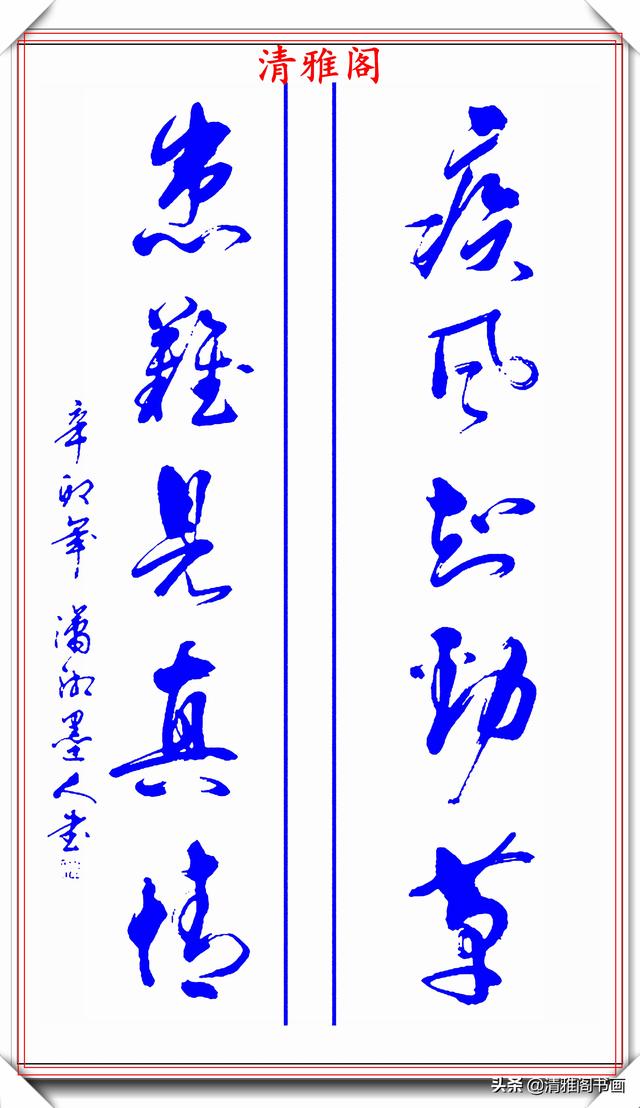 清雅阁
疾风知劲草
患難見真情
辛卯年 潇湘墨人书
头条 @清雅阁书画